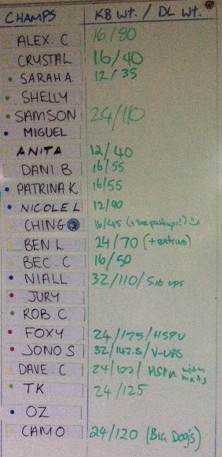 CHAMPS KB Wt. / DL Wt.
ALEX. C 16/90
CRYSTAL 16/40
SARAH A 12/35
SHELLY
SAMSON 24/110
MIGUEL
ANITA 12/40
DANI B 16/55
PATRINA K 16/55
NICOLE L
CHING 16/45
BEN L 24/70 (+extras)
BEC. C 16/50
NIALL 32/110/Sit ups
JURY
ROB. C
FOXY 24/175/HSPU
JONO S 32/142.5/V-UPS
DAVE. C HSPU
TK 24/125
OZ
CAMO 24/120 (BIG DOG'S)